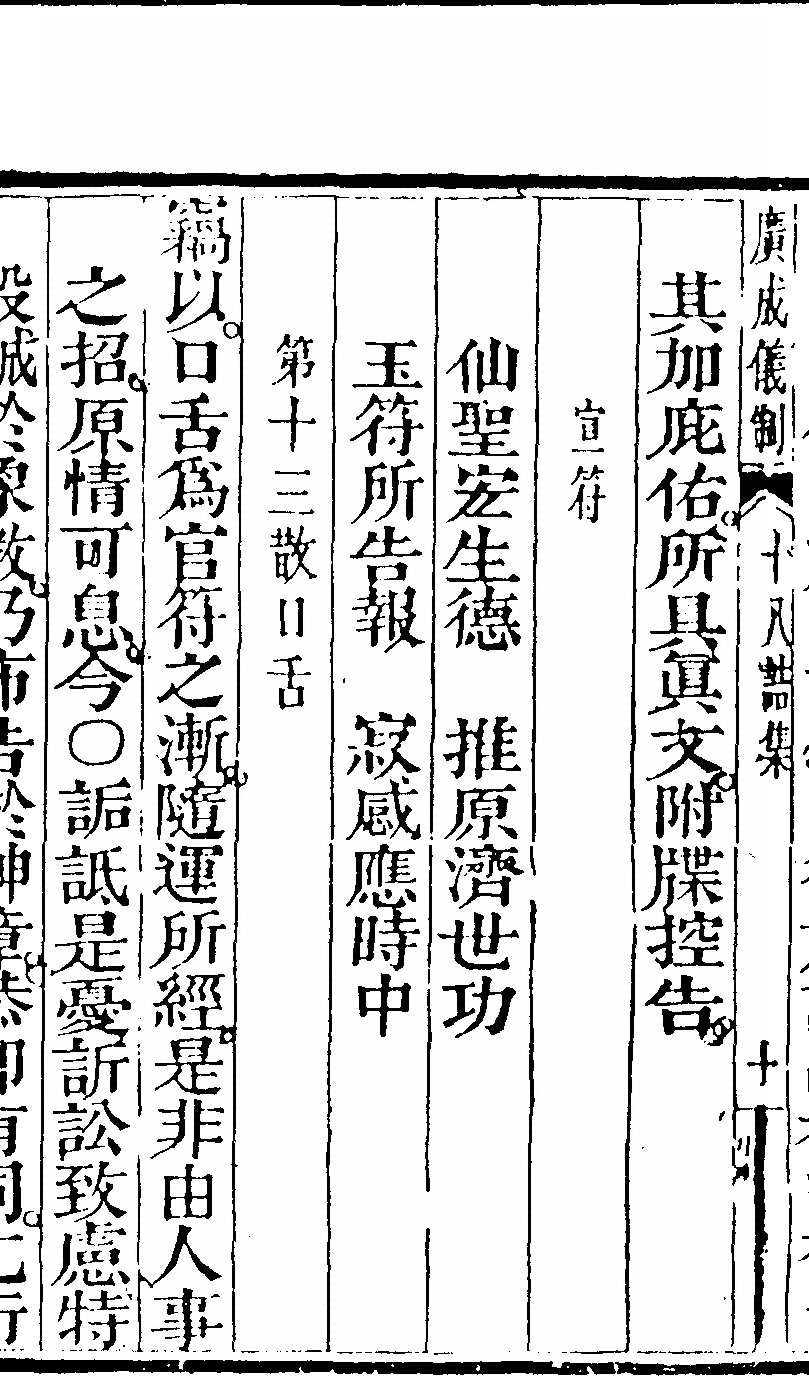 廣成儀制 十八誥集 十
其加庇佑所具眞文附牒控告
宣符
仙聖宏生德 推原濟世功
玉符所告報 寂感應時中
第十三散口舌
竊以口舌爲官符之漸隨運所經是非由人事
之招原情可息今〇詬詆是憂訴訟致慮特
投誠於 敎乃布告於神章恭卽有同